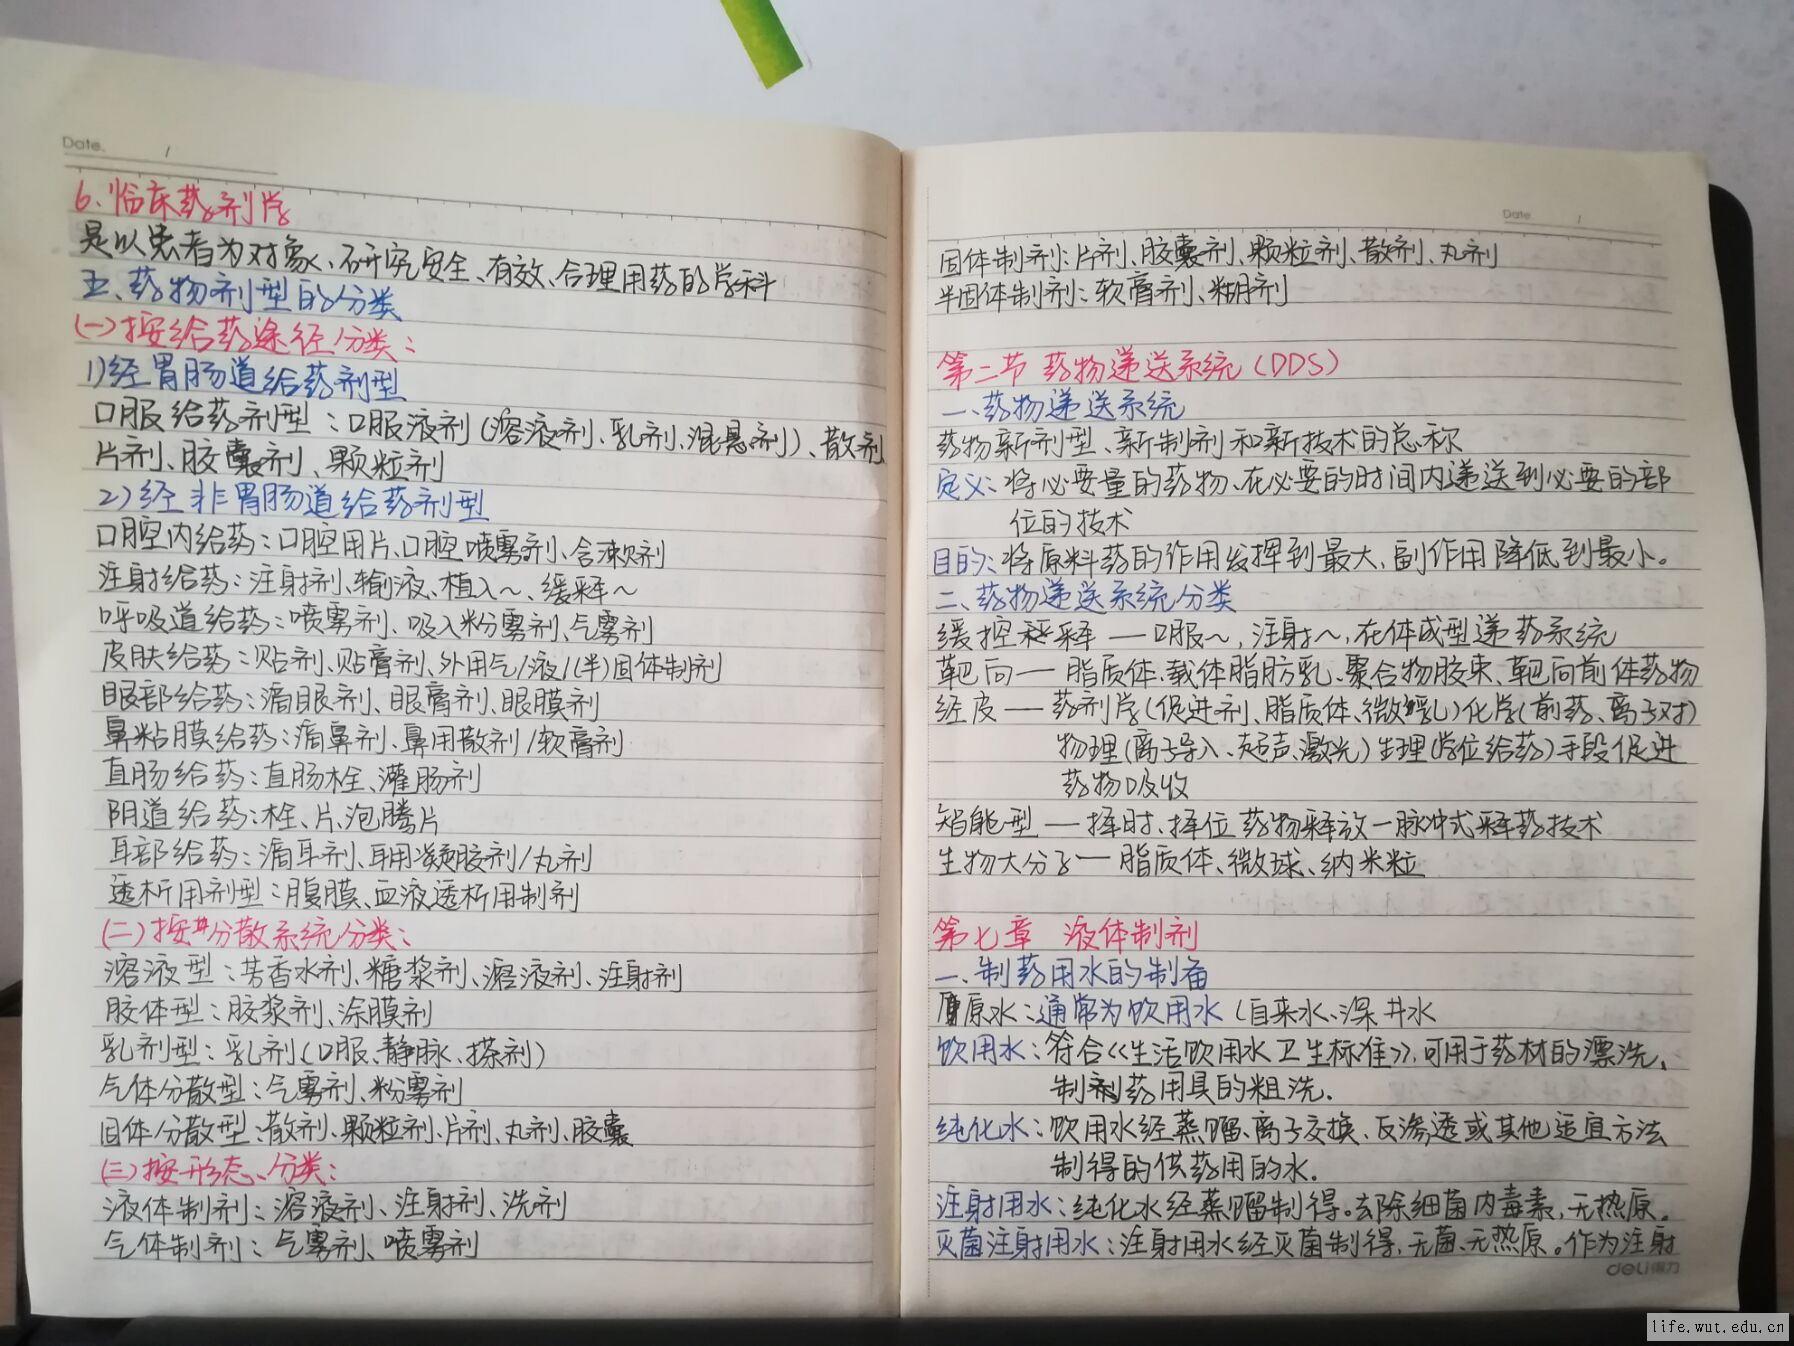 Date. /
6. 临床药剂学
是以患者为对象、研究安全、有效、合理用药的学科
五、药物剂型的分类
(一)按给药途径分类:
1)经胃肠道给药剂型
口服给药剂型:口服液剂(溶液剂、乳剂、混悬剂)、散剂
片剂、胶囊剂、颗粒剂
2)经非胃肠道给药剂型
口腔内给药:口腔用片、口腔喷雾剂、含漱剂
注射给药:注射剂、输液、植入~、缓释~
呼吸道给药:喷雾剂、吸入粉雾剂、气雾剂
皮肤给药:贴剂、贴膏剂、外用气/液/(半)固体制剂
眼部给药:滴眼剂、眼膏剂、眼膜剂
鼻粘膜给药:滴鼻剂、鼻用散剂/软膏剂
直肠给药:直肠栓、灌肠剂
阴道给药:栓、片、泡腾片
耳部给药:滴耳剂、耳用凝胶剂/丸剂
透析用剂型:腹膜、血液透析用制剂
(二)按分散系统分类:
溶液型:芳香水剂、糖浆剂、溶液剂、注射剂
胶体型:胶浆剂、涂膜剂
乳剂型:乳剂(口服、静脉、搽剂)
气体分散型:气雾剂、粉雾剂
固体分散型:散剂、颗粒剂、片剂、丸剂、胶囊
(三)按形态分类:
液体制剂:溶液剂、注射剂、洗剂
气体制剂:气雾剂、喷雾剂
Date. /
固体制剂:片剂、胶囊剂、颗粒剂、散剂、丸剂
半固体制剂:软膏剂、糊剂
第二节 药物递送系统(DDS)
一、药物递送系统
药物新剂型、新制剂和新技术的总称
定义:将必要量的药物、在必要的时间内递送到必要的部
位的技术
目的:将原料药的作用发挥到最大,副作用降低到最小。
二、药物递送系统分类
缓控释 — 口服~,注射~,在体成型递药系统
靶向 — 脂质体、载体脂肪乳、聚合物胶束、靶向前体药物
经皮 — 药剂学(促进剂、脂质体、微乳)化学(前药、离子对)
物理(离子导入、超声、激光)生理(学位给药)手段促进
药物吸收
智能型 — 择时、择位药物释放—脉冲式释药技术
生物大分子 — 脂质体、微球、纳米粒
第七章 液体制剂
一、制药用水的制备
原水:通常为饮用水(自来水、深井水
饮用水:符合《生活饮用水卫生标准》,可用于药材的漂洗、
制药用具的粗洗.
纯化水:饮用水经蒸馏、离子交换、反渗透或其他适宜方法
制得的供药用的水.
注射用水:纯化水经蒸馏制得。去除细菌内毒素,无热原。
灭菌注射用水:注射用水经灭菌制得,无菌、无热原。作为注射
deli得力
life.wut.edu.cn